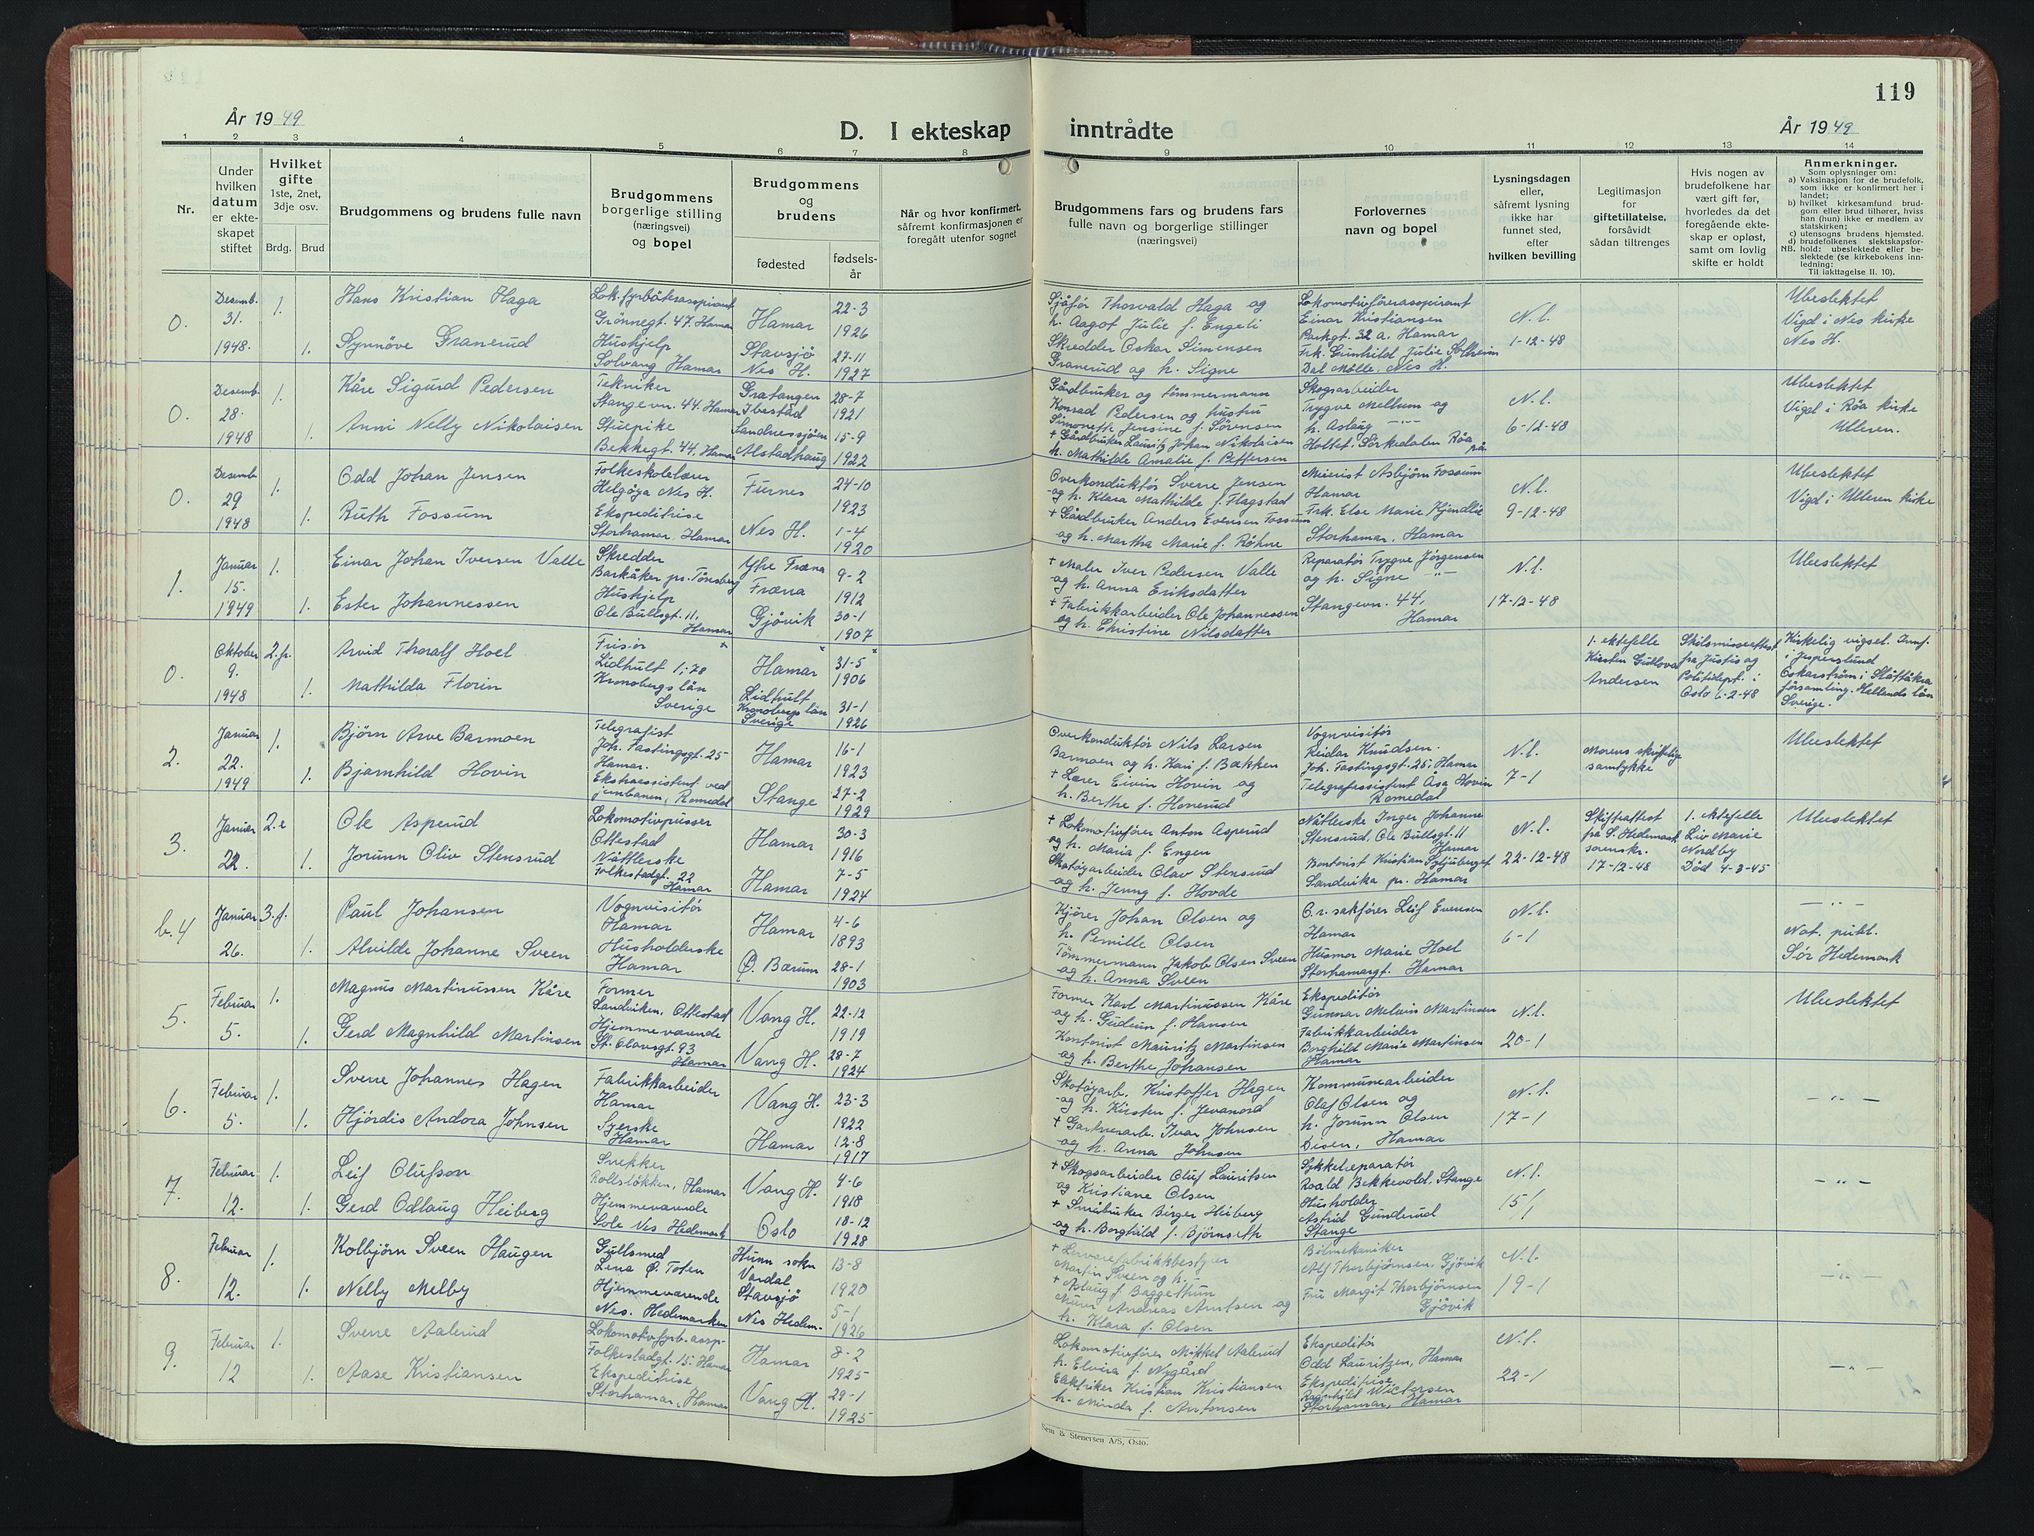 119
År 1949
D. I ekteskap inntrådte
År 1949
1 2 3 4 5 6 7 8 9 10 11 12 13 14
Nr.
Under
hvilken
datum
er ekte-
skapet
stiftet
Hvilket
gifte
1ste, 2net,
3dje osv.
Brdg. Brud
Brudgommens og brudens fulle navn
Brudgommens
borgerlige stilling
(næringsvei)
og bopel
Brudgommens
og
brudens
fødested
fødsels-
år
Når og hvor konfirmert,
såfremt konfirmasjonen er
foregått utenfor sognet
Brudgommens fars og brudens fars
fulle navn og borgerlige stillinger
(næringsvei)
Forlovernes
navn og bopel
Lysningsdagen
eller,
såfremt lysning
ikke har
funnet sted,
efter
hvilken bevilling
Legitimasjon
for
giftetillatelse,
forsåvidt
sådan tiltrenges
Hvis nogen av
brudefolkene har
vært gift før,
hvorledes da det
foregående ekte-
skap er opløst,
samt om lovlig
skifte er holdt
Anmerkninger.
Som oplysninger om:
a) Vaksinasjon for de brudefolk,
som ikke er konfirmert her i
landet;
b) hvilket kirkesamfund brud-
gom eller brud tilhører, hviss
han (hun) ikke er medlem av
statskirken;
c) utensogns brudens hjemsted.
d) brudefolkenes slektskapsfor-
NB. hold: ubeslektede eller be-
slektede (se kirkebokens inn-
ledning:
Til iakttagelse II. 10).
0.
Desemb.
31.
1948
1.
1.
Hans Kristian Haga
Synnöve Granerud
Lok.fyrböteraspirant
Grönnegt. 47, Hamar
Hushjelp
Solvang Hamar
Hamar
Stavsjö
Nes H.
22-3
1926
27-11
1927
Sjåför Thorvald Haga og
h. Aagot Julie f. Engeli
Skredder Oskar Simensen
Granerud og h. Signe
Lokomotivföreraspirant
Einar Kristiansen
Parkgt. 32 a, Hamar
Frk. Gunhild Julie Solheim
Dal Mölle, Nes H.
N.l.
1-12-48
Ubeslektet
Vigd i Nes kirke
Nes H.
0.
Desemb.
28.
1948
1.
1.
Kåre Sigurd Pedersen
Anni Nelly Nikolaisen
Tekniker
Stangevn. 44. Hamar
Stuepike
Bekkegt. 44, Hamar
Gratangen
Ibestad
Sandnessjöen
Alstadhaug
28-7
1921
15-9
1922
Gårdbruker og tömmermann
Konrad Pedersen og hustru
Simonette Jensine f. Sörensen
+ Gårdbruker Lauritz Johan Nikolaisen
h. Mathilde Amalie f. Pettersen
Skogsarbeider
Trygve Mellum og
h. Aslaug -"-
Holtet, Sörkedalen Röa
N.l.
6-12-48
Ubeslektet
Vigd i Röa kirke
Ulleren.
0.
Desemb.
29
1948
1.
1.
Odd Johan Jensen
Ruth Fossum
Folkeskolelærer
Helgöya Nes H.
Ekspeditrise
Storhamar, Hamar
Furnes
Nes H.
24-10
1923
1-4
1920
Overkonduktör Sverre Jensen
og h. Klara Mathilde f. Flagstad
+ Gårdbruker Anders Evensen Fossum
og h. Martha Marie f. Röhne
Meierist Asbjörn Fossum
Hamar
Frk. Else Marie Kjendlie
Storhamar, Hamar
N.l.
9-12-48
Ubeslektet
Vigd i Ulleren kirke
1.
Januar
15.
1949
1.
1.
Einar Johan Iversen Valle
Ester Johannessen
Skredder
Barkåker pr. Tönsberg
Hushjelp
Ole Bullsgt. 11,
Hamar
Ytre Fræna
Fræna
Gjövik
9-2
1912
30-1
1907
+ Maler Iver Pedersen Valle
og h. Anna Eriksdatter
+ Fabrikkarbeider Ole Johannessen
og h. Christine Nilsdatter
Reparatör Trygve Jörgensen
og h. Signe -"-
Stangevn. 44,
Hamar
N.l.
17-12-48
Ubeslektet
0.
Oktober
9.
1948
2. fr.
1.
Arvid Thoralf Hoel
Mathilda Florin
Frisör
Lidhult 1:78
Kronobergs län
Sverige
Hamar
Lidhult
Kronobergs län
Sverige
31-5
1906
31-1
1926
1. ektefelle
Kirsten Gullova
Andersen
Skilsmisseattest
fra Justis og
Politidept. i
Oslo 6-2-48
Kirkelig vigsel. Innf.
i Jesperslund
Oskarström i Slättåkra
församling. Hallands län
Sverige.
2.
Januar
22.
1949
1.
1.
Björn Arve Barmoen
Bjarnhild Hovin
Telegrafist
Joh. Fastingsgt. 25
Hamar.
Ekstraassistent ved
jernbanen, Romedal
Hamar
Stange
16-1
1923
27-2
1929
Overkonduktör Nils Larsen
Barmoen og h. Kari f. Bækken
+ Lærer Eivin Hovin og
h. Berthe f. Honerud
Vognvisitör
Reidar Knudsen.
Joh. Fastingsgt. 25, Hamar
Telegrafassistent Åsa Hovin
Romedal
N.l.
7-1
Morens skriftlige
samtykke
Ubeslektet
3.
Januar
22.
2. e
1.
Ole Asperud
Jorunn Oliv Stensrud
Lokomotivpusser
Ottestad
Nåtlerske
Folkestadgt. 22
Hamar
Hamar
Hamar
30-3
1916
7-5
1924
+ Lokomotivförer Anton Asperud
og h. Maria f. Engen
Skotöyarbeider Olav Stensrud
og h. Jenny f. Hovde
Nåtlerske Inger Johanne
Stensrud, Ole Bullsgt. 11
Hamar
Kontorist Kristian
Sandvika pr. Hamar
N.l.
22-12-48
Skifteattest
fra S. Hedemark
sorenskr.
17-12-48
1. ektefelle
Liv Marie
Nordby
Död 4-3-45
Ubeslektet
b.4
Januar
26.
3. f.
1.
Paul Johansen
Alvilde Johanne Sveen
Vognvisitör
Hamar
Husholderske
Hamar
Hamar
Ö. Bærum
4-6
1893
28-1
1903
Kjörer Johan Olsen og
h. Pernille Olsen
Tömmermann Jakob Olsen Sveen
og h. Anna Sveen
O.r. sakförer Leif Evensen
Hamar
Husmor Marie Hoel
Storhamargt. Hamar
N.l.
6-1
-"-
Not. publ.
Sör Hedemark
5.
Februar
5.
1.
1.
Magnus Martinussen Kåre
Gerd Magnhild Martinsen
Former
Sandviken, Ottestad
Hjemmeværende
St. Olavsgt. 93
Hamar
Vang H.
Vang H.
22-12
1919
28-7
1924
Former Karl Martinussen Kåre
og h. Gudrun f. Hansen
Kontorist Mauritz Martinsen
og h. Berthe Johansen
Ekspeditör
Gunnar Melvin Martinsen
Fabrikkarbeider
Borghild Marie Martinsen
Hamar
N.l.
20-1
Ubeslektet
6.
Februar
5.
1.
1.
Sverre Johannes Hagen
Hjördis Andora Johnsen
Fabrikkarbeider
Hamar
Syerske
Hamar
Vang H.
Hamar
23-3
1922
12-8
1917
Skotöyarb. Kristoffer Hagen
og h. Kirsten f. Jevanord
+ Gartnerarb. Ivar Johnsen
og h. Anna Johnsen
Kommunearbeider
Olaf Olsen og
h. Jorunn Olsen
Disen, Hamar
N.l.
17-1
-"-
7.
Februar
12.
1.
1.
Leif Olufson
Gerd Odlaug Heiberg
Snekker
Rollslökken, Hamar
Hjemmeværende
Sole Nes Hedemark
Vang H.
Oslo
4-6
1918
18-12
1928
+ Skogsarbeider Oluf Lauritsen
og Kristiane Olsen
+ Småbruker Birger Heiberg
og h. Borghild f. Björnseth
Sykkelreparatör
Roald Bekkevold, Stange
Husholder
Astrid Gunderud
Stange
N.l.
15/1
-"-
8.
Februar
12.
1.
1.
Kolbjörn Sveen Haugen
Nelly Melby
Gullsmed
Lena Ö. Toten
Hjemmeværende
Nes. Hedemarken
Hunn sokn
Vardal
Stavsjö
Nes Hedem-
13-8
1920
5-1
1926
Martin Sveen og h.
+ Aslaug f. Baggethun
Murer Andreas Arntsen og
h. Klara f. Olsen
Bilmekaniker
Alf Thorbjörnsen, Gjövik
Fru Margit Thorbjörnsen
Gjövik
N.l.
19-1
-"-
9.
Februar
12
1.
1.
Sverre Aalerud
Aase Kristiansen
Lokomotivfyrb. assp-
Folkestadgt. 15, Hamar
Ekspeditrise
Storhamar, Hamar
Hamar
Vang H.
8-2
1925
29-1
1925
Lokomotivförer Mikkel Aalerud
h. Elvira f. Nygård
Elektriker Kristian Kristiansen
h. Minda f. Antonsen
Ekspeditör
Odd Lauritzen, Hamar
Ekspeditrise
Ragnhild
Storhamar, Hamar
N.l.
22-1
-"-
Sem & Stenersen A/S, Oslo.